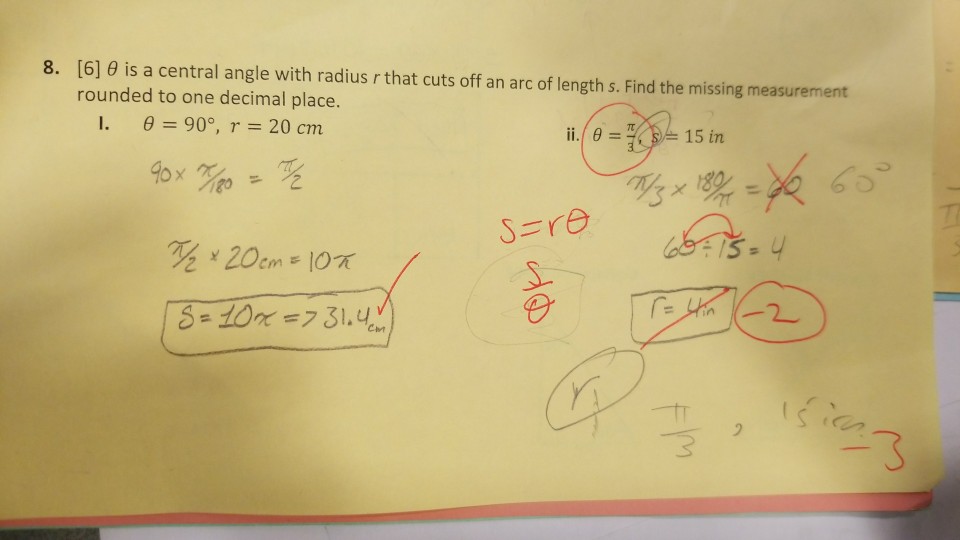 8. [6] θ is a central angle with radius r that cuts off an arc of length s. Find the missing measurement
rounded to one decimal place.
I. θ = 90°, r = 20 cm
90 x π/180 = π/2
π/2 x 20cm = 10π
S = 10π => 31.4 cm
s = rθ
s/θ
r
ii. θ = π/3, s = 15 in
π/3 x 180/π = 60 60°
60 ÷ 15 = 4
r = 4in -2
π/3 , 15 in
-3